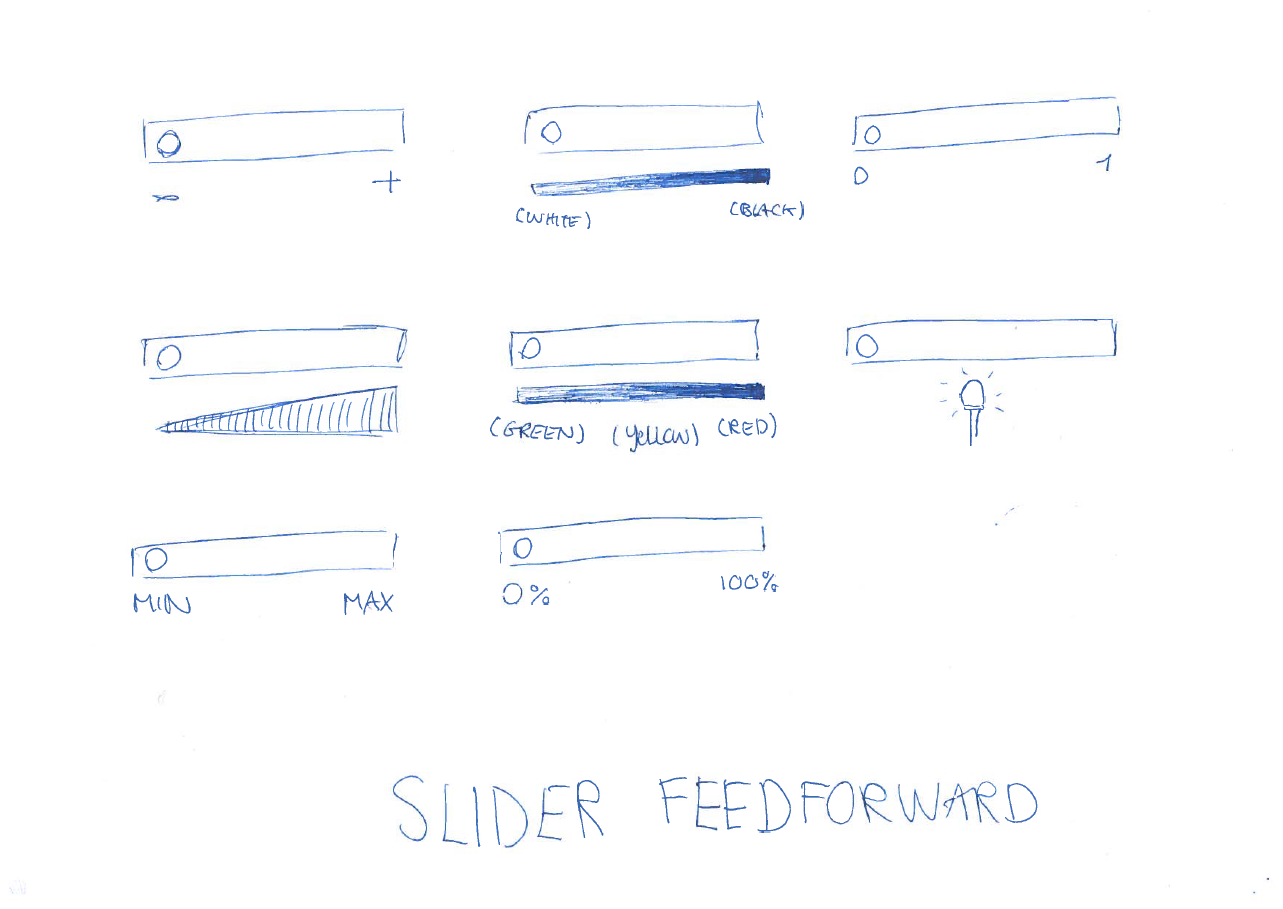 - +
(WHITE) (BLACK)
0 1
(GREEN) (Yellow) (RED)
MIN MAX
0% 100%
SLIDER FEEDFORWARD